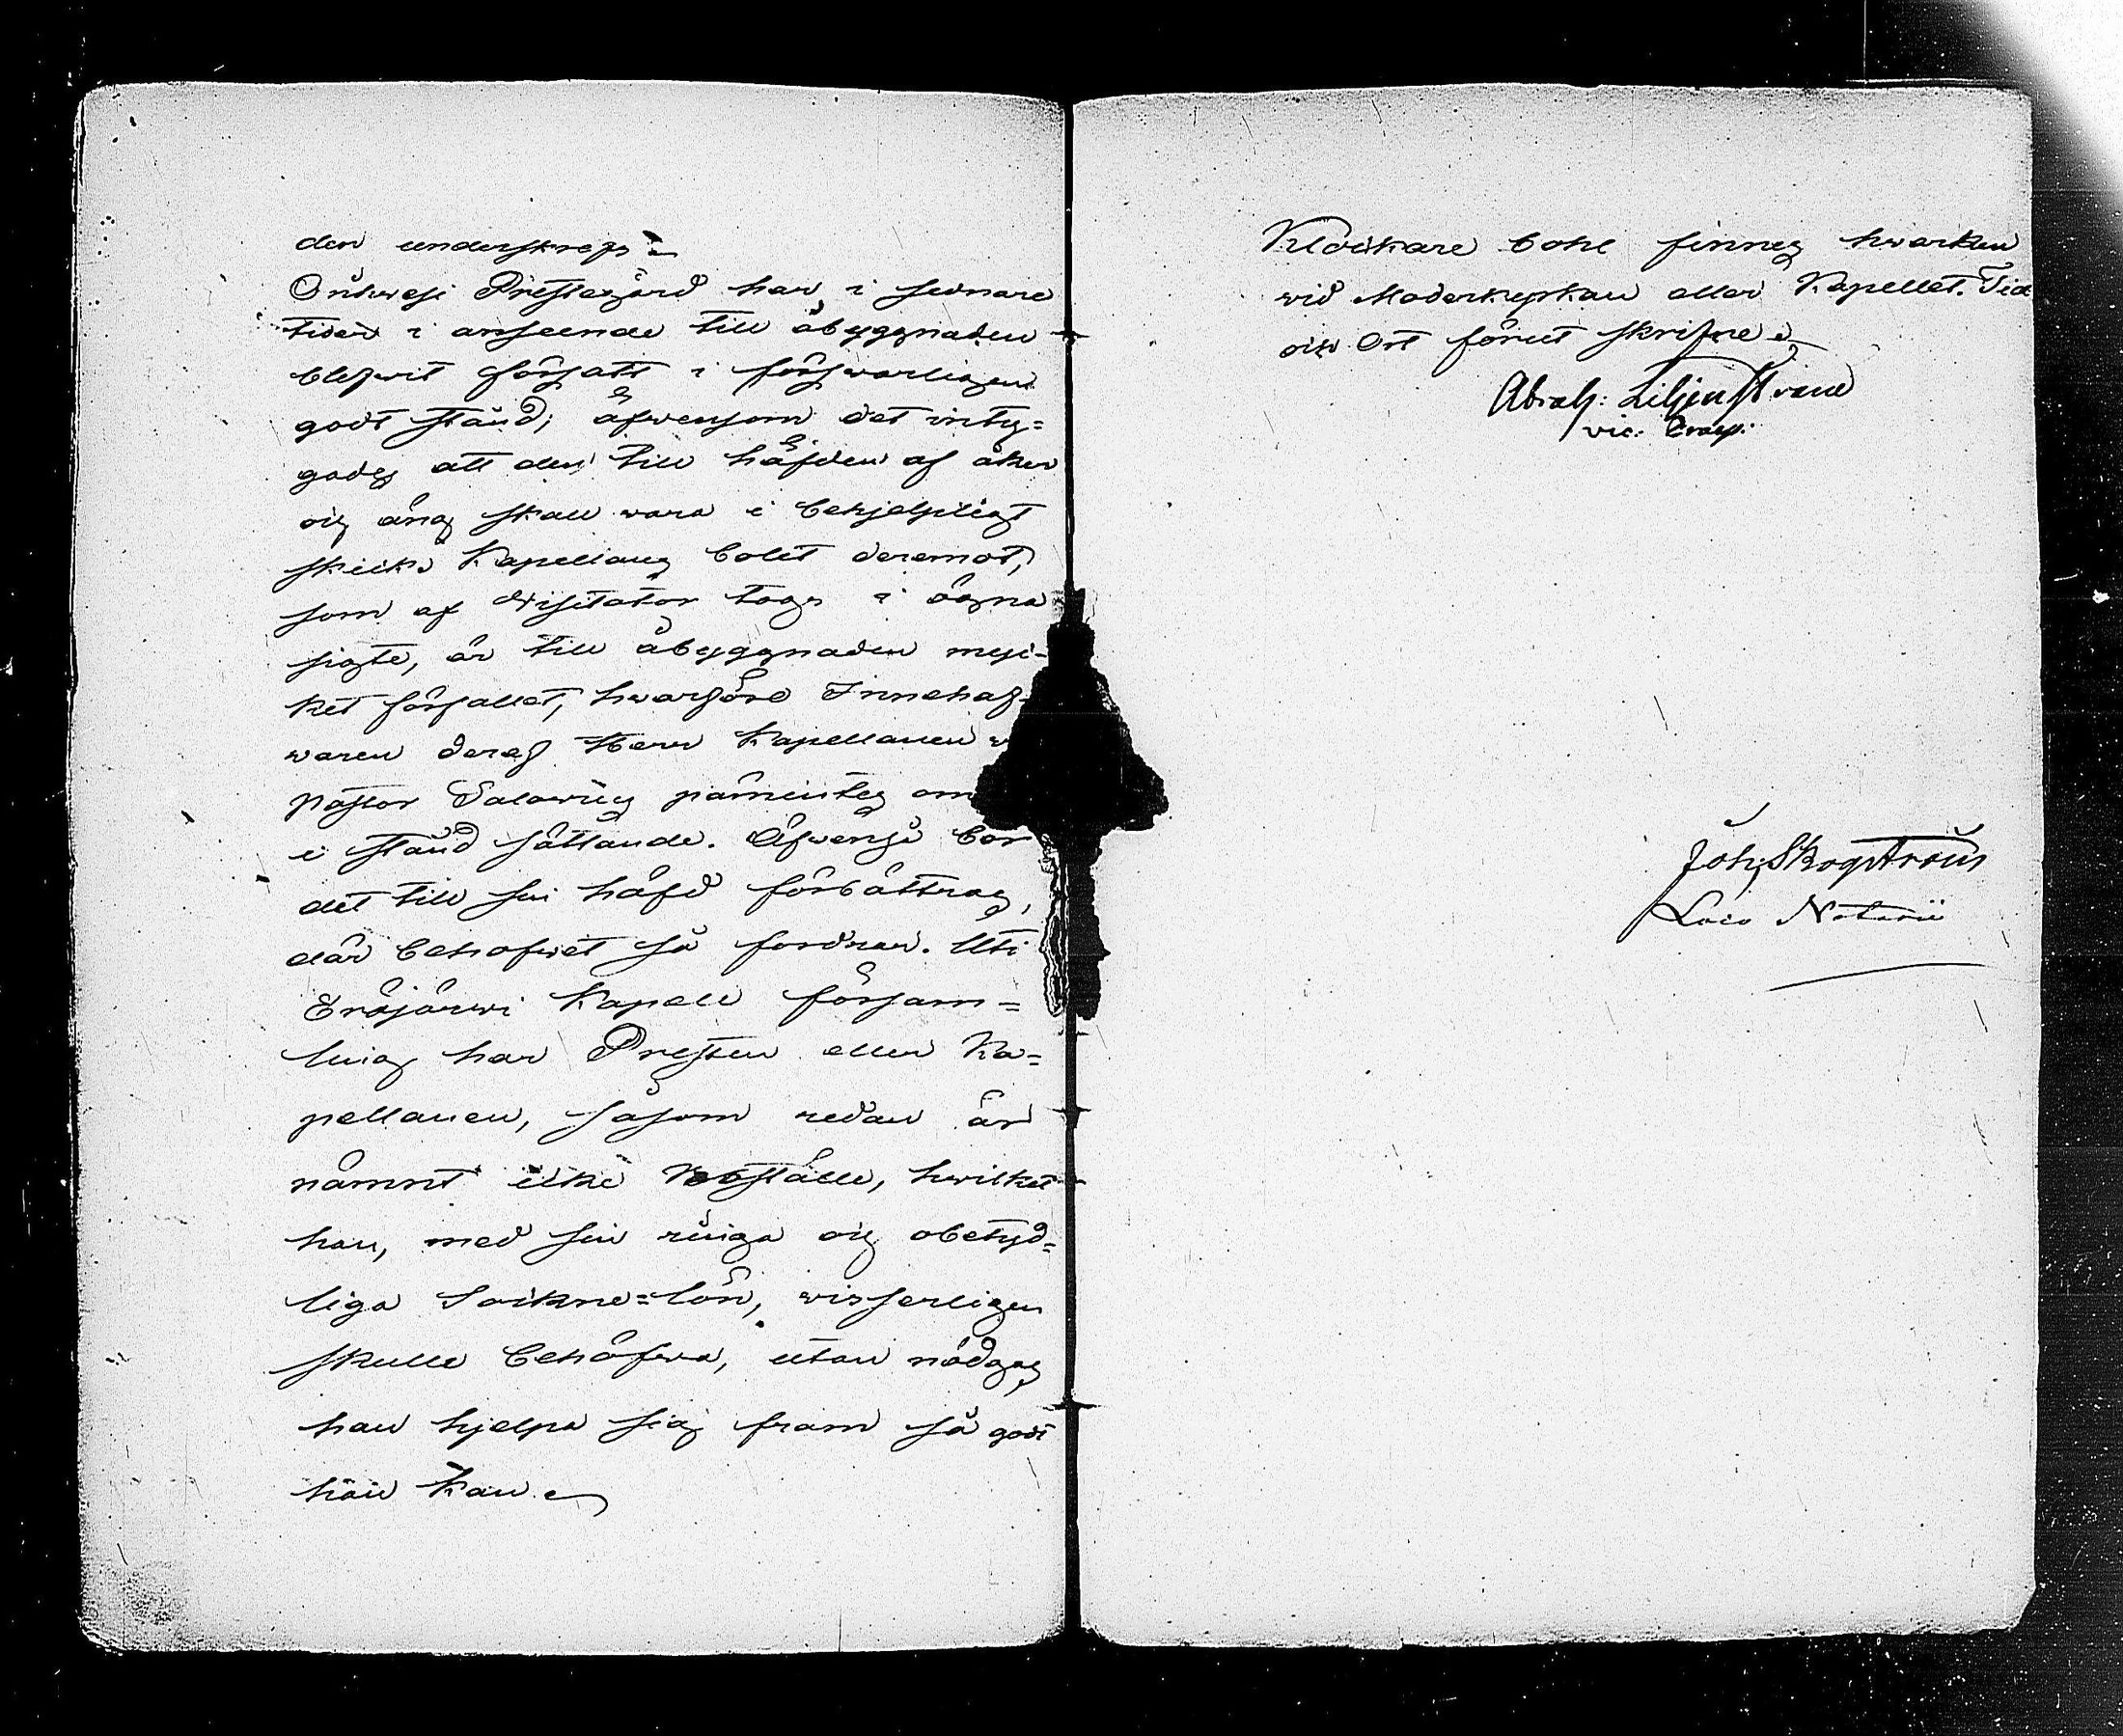 den underskrefs.
Oriwesi Prestegård har i sednare
tider i anseende till åbyggnaden
blefwit försatt i förswarligen
godt stånd; äfwensom det inty=
gades att den till häfden af åker
och äng skall wara i behjelpligt
skick. Kapellans bolet deremot,
som af Visitator togs i ögna
sigte, är till åbyggnaden myc-
ket förfallet, hwarföre Innehaf-
waren deraf Herr Kapellanen
Pastor påmintes om
i stånd sättande. Äfwenså bör
det till sin häfd förbättras,
där behofwet så fordrar. Uti
Eräjärwi Kapell försam=
ling har Presten eller Ka=
pellanen, såsom redan är
nämnt icke Boställe, hwilket
han, med sin ringa och obetyd=
liga Sockne=lön, wisserligen
skulle behöfwa, utan nödgas
han hjelpa sig fram så godt
han kan.
Klockare bohl finnes hwarken
wid Moderkyrkan eller Kapellet. Tid
och Ort förut skrifne.
Abrah: Liljenstrand
vic: Praep:
Joh. Skogström
Loco Notarii